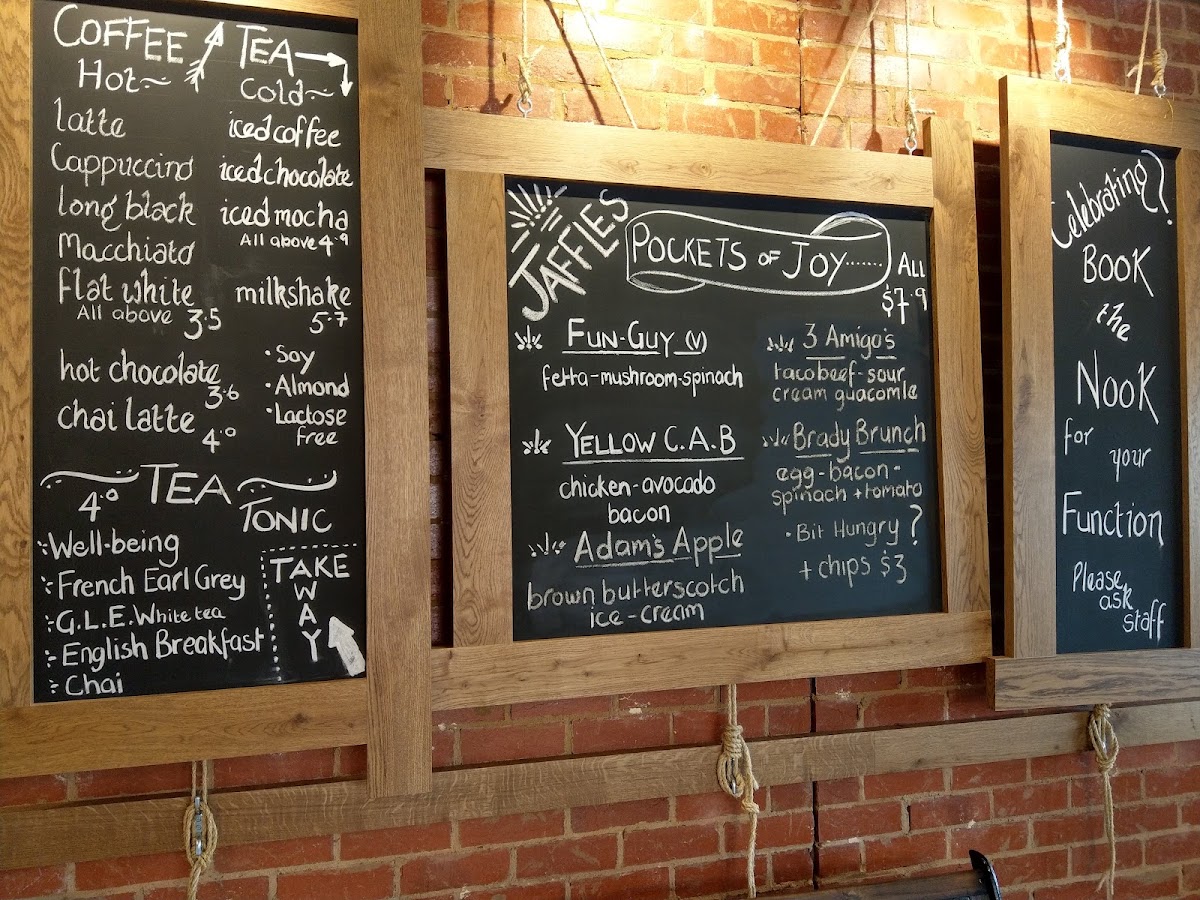 COFFEE
Hot
latte
Cappuccino
long black
Macchiato
flat white
All above 3.5
hot chocolate
3.6
chai latte
4.0
TEA
Cold
iced coffee
iced chocolate
iced mocha
All above 4.9
milkshake
5.7
• Soy
• Almond
• Lactose
free
TEA
4.0
TONIC
Well-being
French Earl Grey
G.L.E. White tea
English Breakfast
Chai
TAKE
W
A
Y
JAFFLES
POCKETS OF JOY.......
ALL
$7.9
FUN-GUY (V)
fetta-mushroom-spinach
YELLOW C.A.B
chicken-avocado
bacon
Adam's Apple
brown butterscotch
ice-cream
3 Amigo's
taco beef-sour
cream guacomle
Brady Brunch
egg-bacon-
spinach + tomato
• Bit Hungry?
+ chips $3
Celebrating?
BOOK
the
NOOK
for your
Function
Please
ask
staff